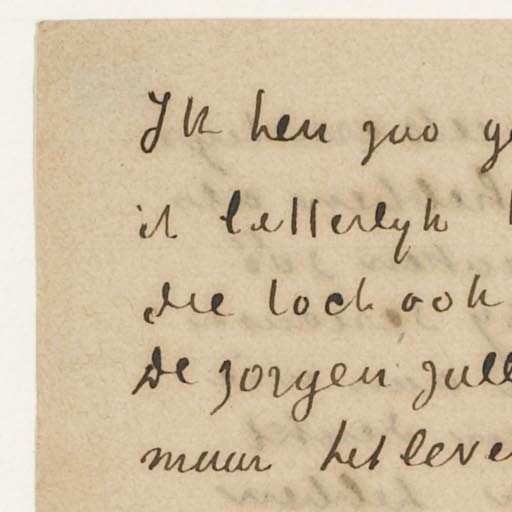 Ik ben zoo ge
ik letterlyk
die toch ook
De zorgen zull
maar het leve